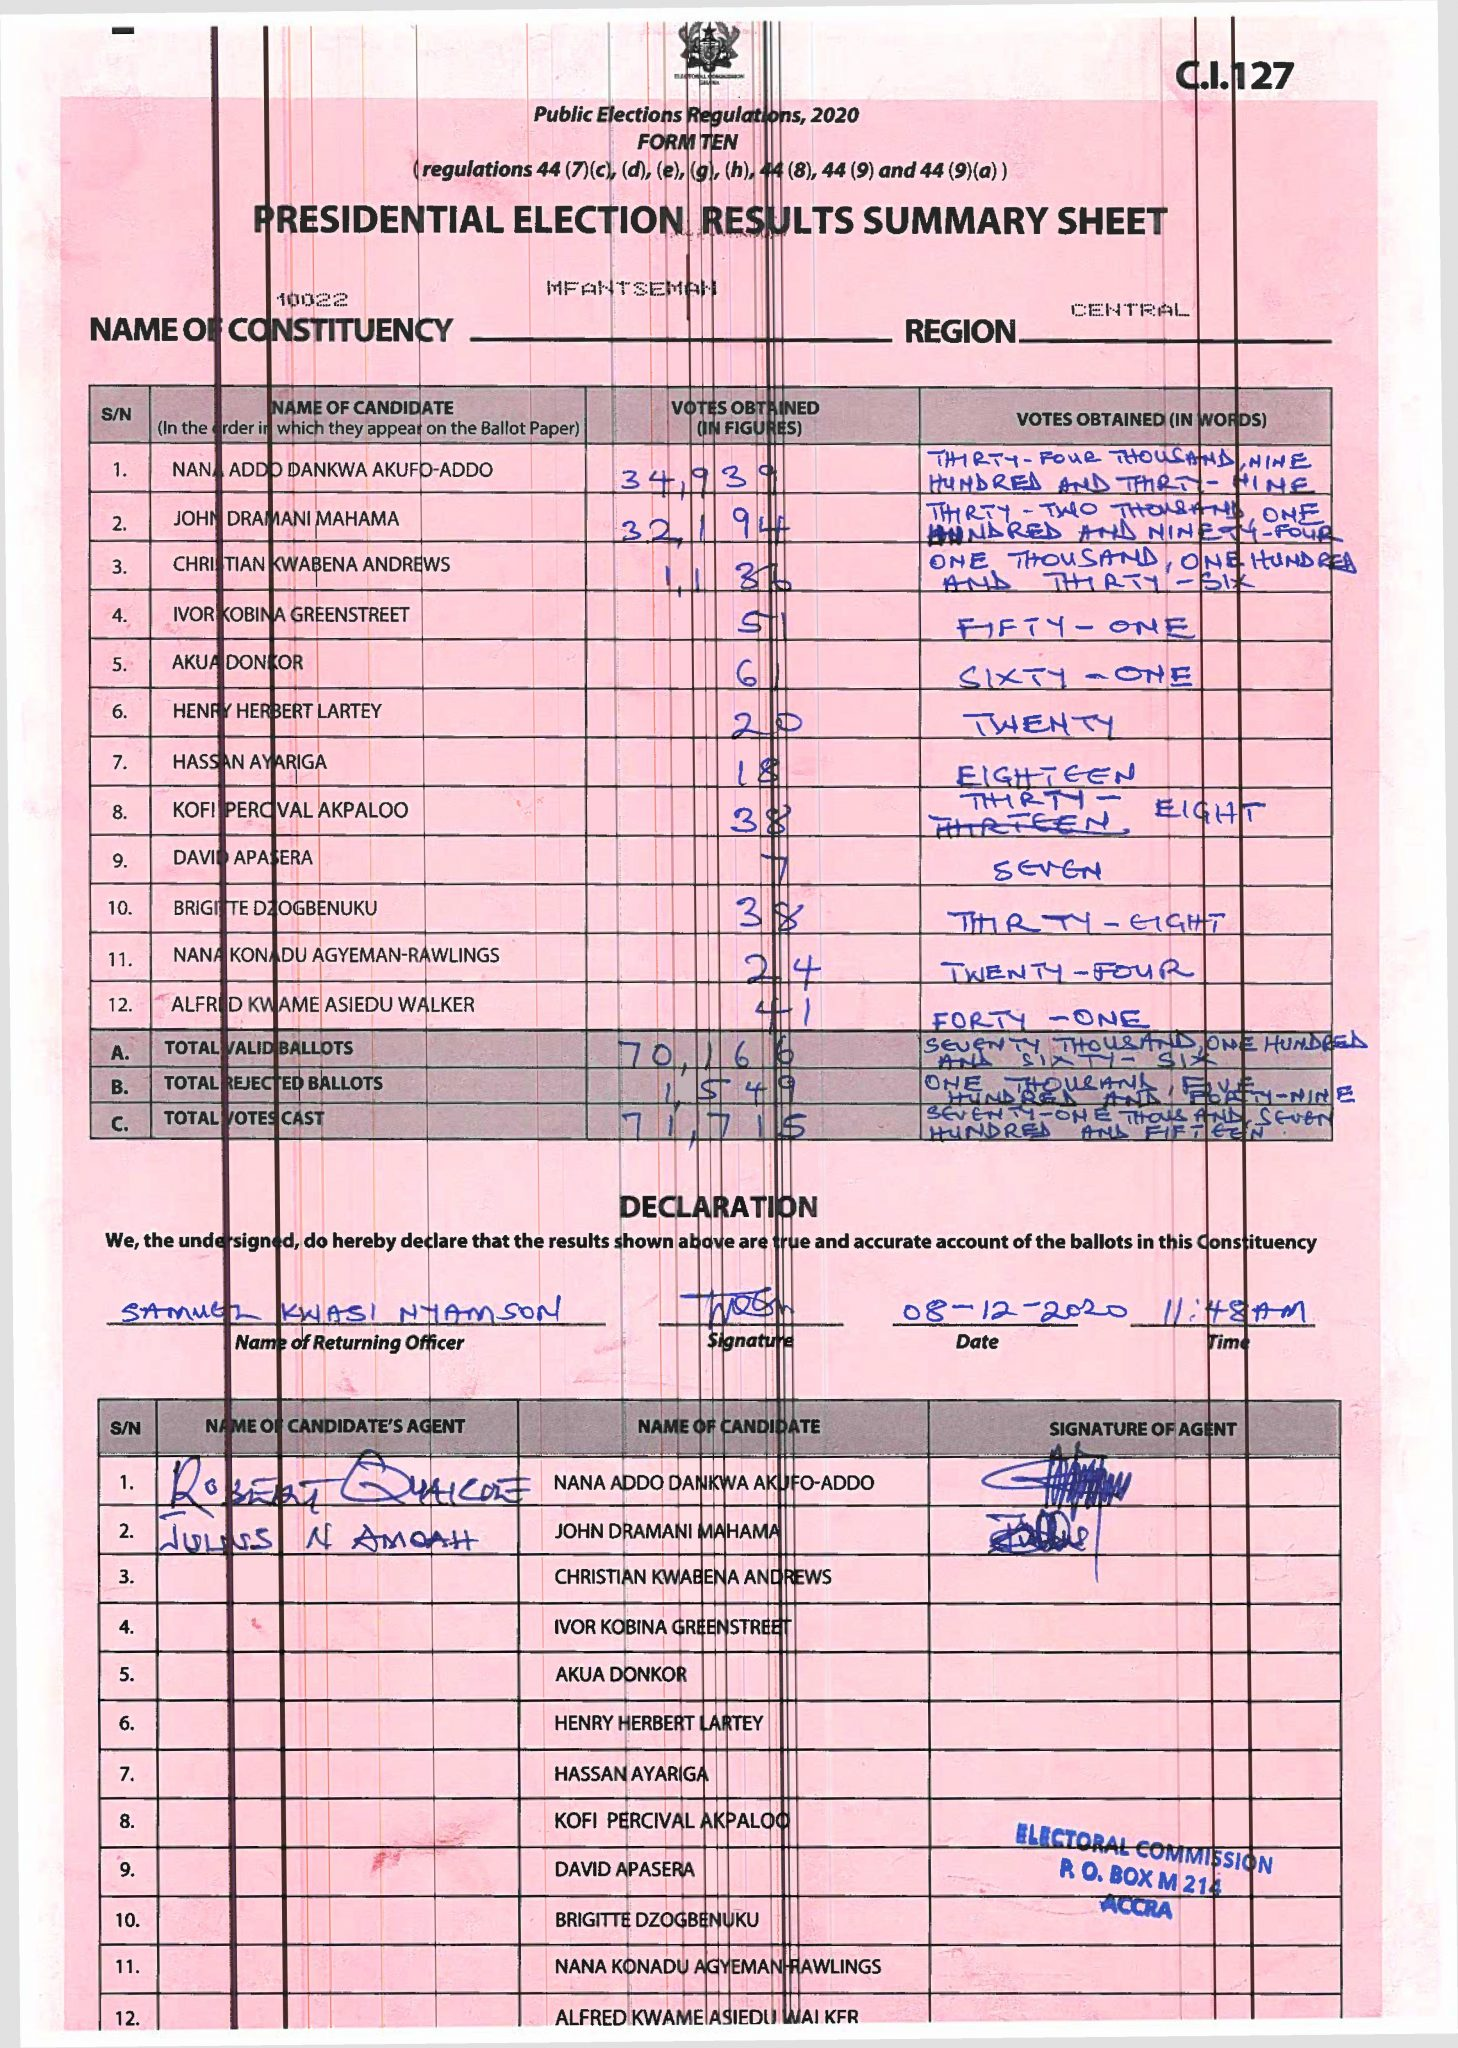 ELECTORAL COMMISSION
GHANA
C.I.127
Public Elections Regulations, 2020
FORM TEN
( regulations 44 (7)(c), (d), (e), (g), (h), 44 (8), 44 (9) and 44 (9)(a) )
PRESIDENTIAL ELECTION RESULTS SUMMARY SHEET
10022 MFANTSEMAN CENTRAL
NAME OF CONSTITUENCY REGION
S/N NAME OF CANDIDATE (In the order in which they appear on the Ballot Paper) VOTES OBTAINED (IN FIGURES) VOTES OBTAINED (IN WORDS)
1. NANA ADDO DANKWA AKUFO-ADDO 34,939 THIRTY-FOUR THOUSAND, NINE HUNDRED AND THIRTY-NINE
2. JOHN DRAMANI MAHAMA 32,194 THIRTY-TWO THOUSAND, ONE HUNDRED AND NINETY-FOUR
3. CHRISTIAN KWABENA ANDREWS 1,136 ONE THOUSAND, ONE HUNDRED AND THIRTY-SIX
4. IVOR KOBINA GREENSTREET 51 FIFTY-ONE
5. AKUA DONKOR 61 SIXTY-ONE
6. HENRY HERBERT LARTEY 20 TWENTY
7. HASSAN AYARIGA 18 EIGHTEEN
8. KOFI PERCIVAL AKPALOO 38 THIRTY- EIGHT THIRTEEN
9. DAVID APASERA 7 SEVEN
10. BRIGITTE DZOGBENUKU 38 THIRTY-EIGHT
11. NANA KONADU AGYEMAN-RAWLINGS 24 TWENTY-FOUR
12. ALFRED KWAME ASIEDU WALKER 41 FORTY-ONE
A. TOTAL VALID BALLOTS 70,166 SEVENTY THOUSAND, ONE HUNDRED AND SIXTY-SIX
B. TOTAL REJECTED BALLOTS 1,549 ONE THOUSAND, FIVE HUNDRED AND FORTY-NINE
C. TOTAL VOTES CAST 71,715 SEVENTY-ONE THOUSAND, SEVEN HUNDRED AND FIFTEEN
DECLARATION
We, the undersigned, do hereby declare that the results shown above are true and accurate account of the ballots in this Constituency
SAMUEL KWASI NYAMSON 08-12-2020 11:48AM
Name of Returning Officer Signature Date Time
S/N NAME OF CANDIDATE'S AGENT NAME OF CANDIDATE SIGNATURE OF AGENT
1. ROBERT QUAICOE NANA ADDO DANKWA AKUFO-ADDO
2. JULIUS N AMOAH JOHN DRAMANI MAHAMA
3. CHRISTIAN KWABENA ANDREWS
4. IVOR KOBINA GREENSTREET
5. AKUA DONKOR
6. HENRY HERBERT LARTEY
7. HASSAN AYARIGA
8. KOFI PERCIVAL AKPALOO
9. DAVID APASERA
10. BRIGITTE DZOGBENUKU
11. NANA KONADU AGYEMAN-RAWLINGS
12. ALFRED KWAME ASIEDU WALKER
ELECTORAL COMMISSION
P. O. BOX M 214
ACCRA